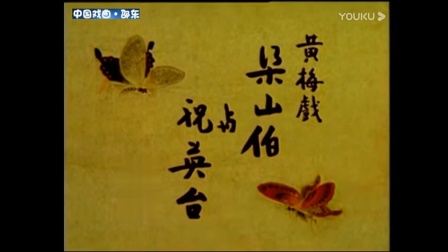 中国戏曲·邵东
YOUKU
黄梅戲
梁山伯
与
祝英台